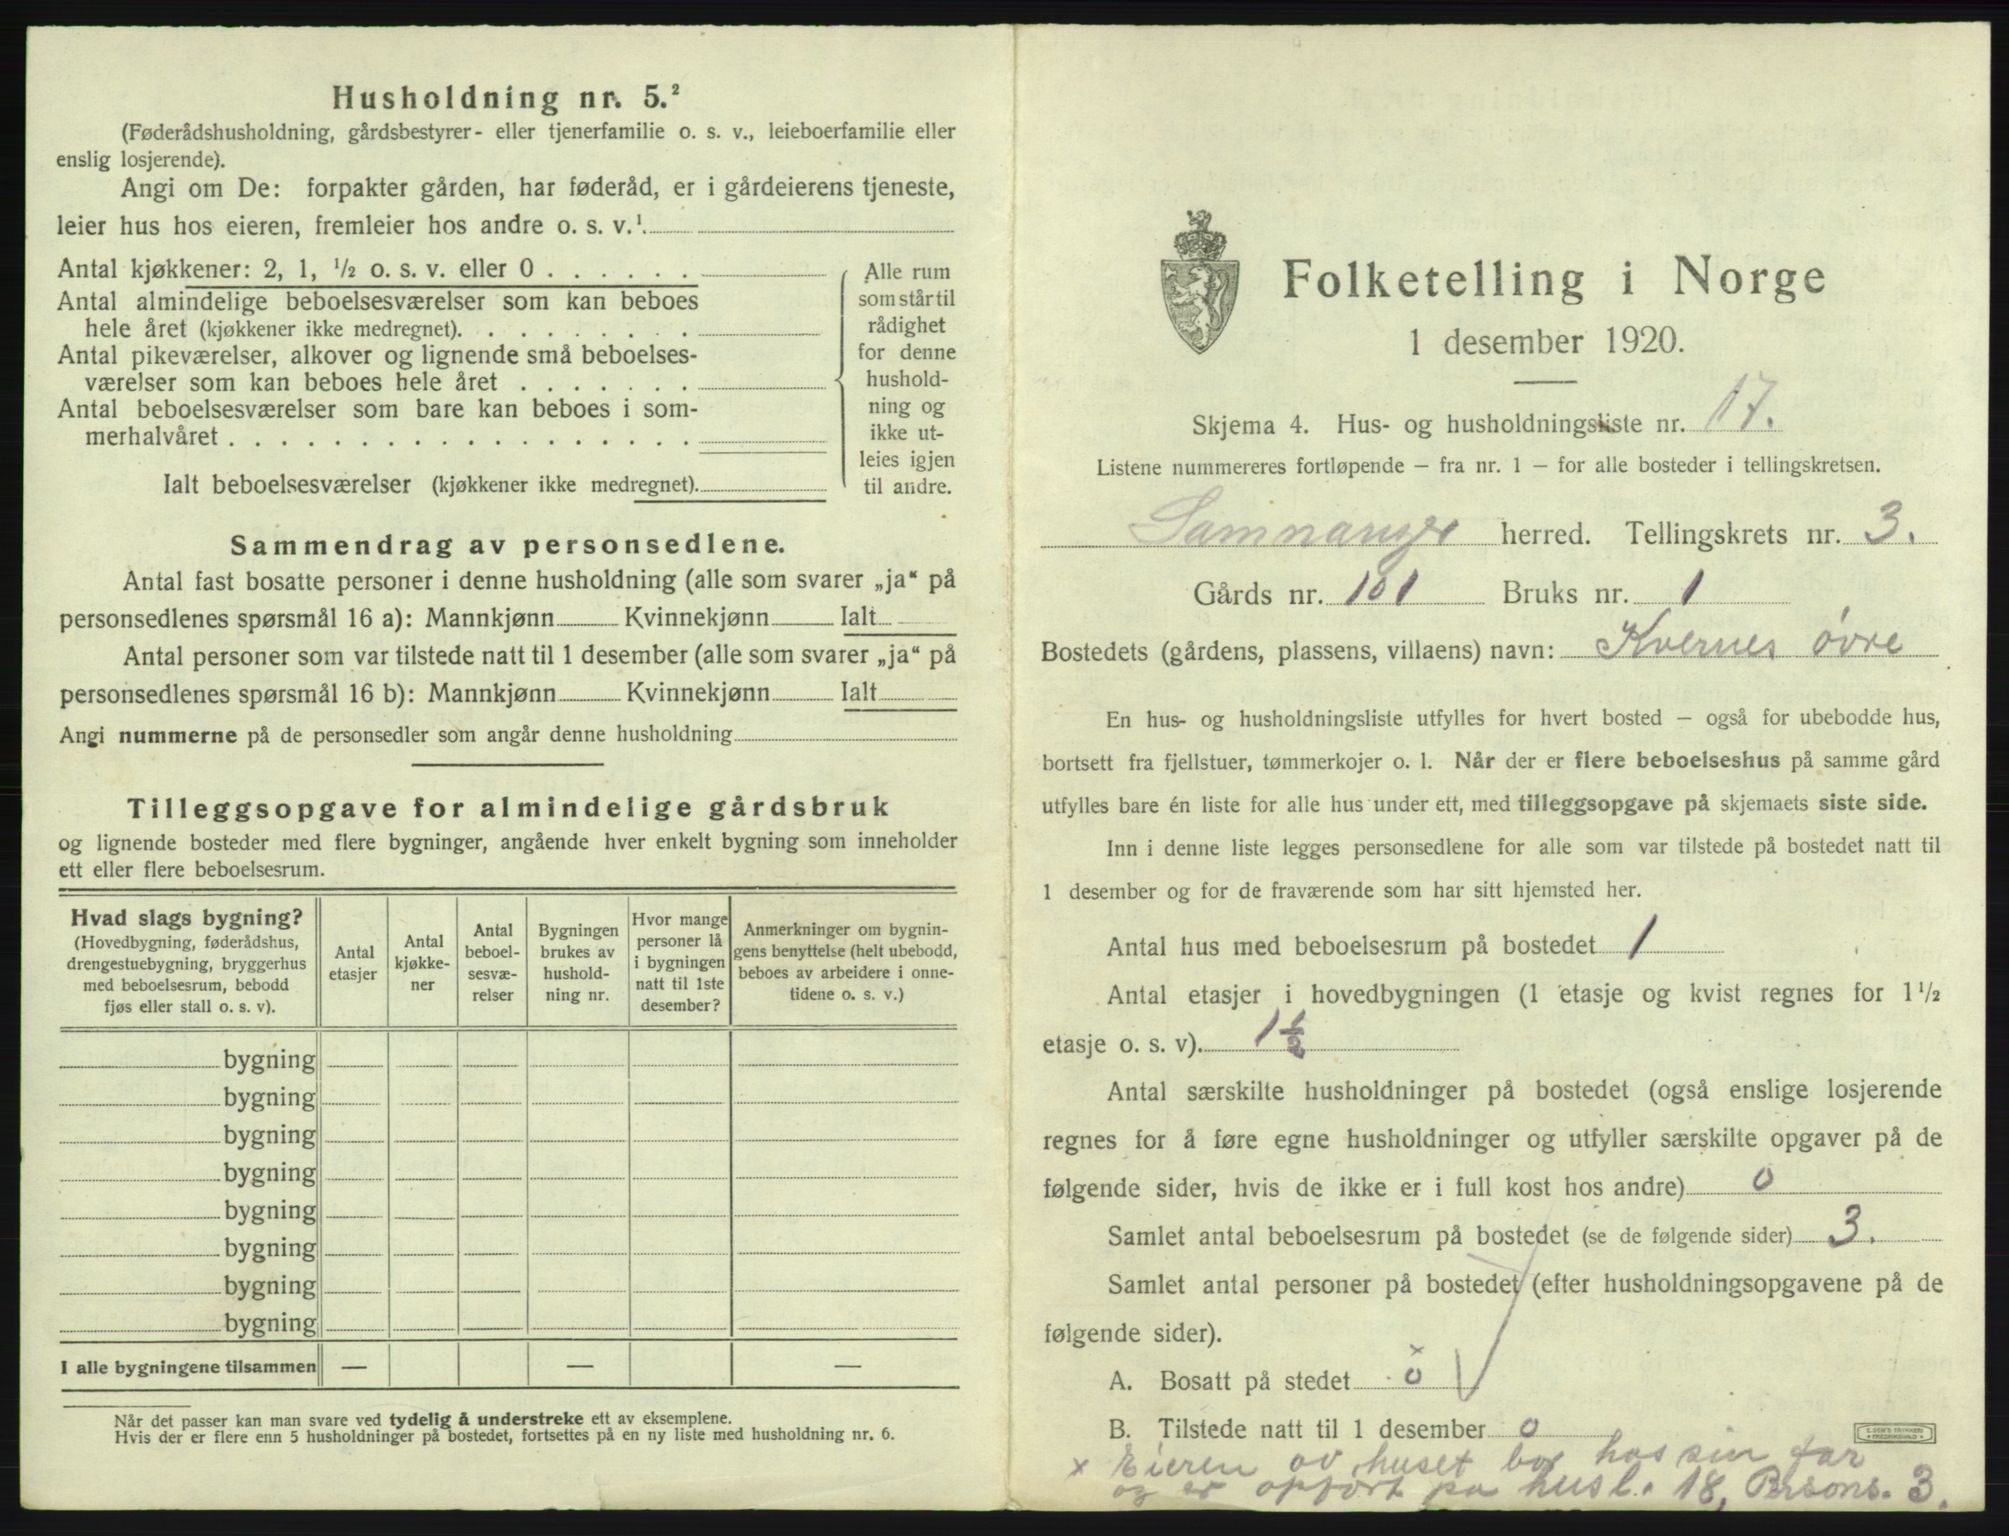 Husholdning nr. 5.²
(Føderådshusholdning, gårdsbestyrer- eller tjenerfamilie o. s. v., leieboerfamilie eller
enslig losjerende).
Angi om De: forpakter gården, har føderåd, er i gårdeierens tjeneste,
leier hus hos eieren, fremleier hos andre o. s. v.¹
Antal kjøkkener: 2, 1, ½ o. s. v. eller 0 . . . . . .
Antal almindelige beboelsesværelser som kan beboes
hele året (kjøkkener ikke medregnet). . . . . . . . .
Antal pikeværelser, alkover og lignende små beboelses-
værelser som kan beboes hele året . . . . . . .
Antal beboelsesværelser som bare kan beboes i som-
merhalvåret . . . . . . . . . . . . . . . . . .
Ialt beboelsesværelser (kjøkkener ikke medregnet).
Alle rum
som står til
rådighet
for denne
hushold-
ning og
ikke ut-
leies igjen
til andre.
Sammendrag av personsedlene.
Antal fast bosatte personer i denne husholdning (alle som svarer „ja“ på
personsedlenes spørsmål 16 a): Mannkjønn Kvinnekjønn Ialt
Antal personer som var tilstede natt til 1 desember (alle som svarer „ja“ på
personsedlenes spørsmål 16 b): Mannkjønn Kvinnekjønn Ialt
Angi nummerne på de personsedler som angår denne husholdning
Tilleggsopgave for almindelige gårdsbruk
og lignende bosteder med flere bygninger, angående hver enkelt bygning som inneholder
ett eller flere beboelsesrum.
Hvad slags bygning?
(Hovedbygning, føderådshus,
drengestuebygning, bryggerhus
med beboelsesrum, bebodd
fjøs eller stall o. s. v).
Antal
etasjer
Antal
kjøkke-
ner
Antal
beboel-
sesvæ-
relser
Bygningen
brukes av
hushold-
ning nr.
Hvor mange
personer lå
i bygningen
natt til 1ste
desember?
Anmerkninger om bygnin-
gens benyttelse (helt ubebodd,
beboes av arbeidere i onne-
tidene o. s. v.)
bygning
bygning
bygning
bygning
bygning
bygning
bygning
bygning
I alle bygningene tilsammen — — —
Når det passer kan man svare ved tydelig å understreke ett av eksemplene.
Hvis der er flere enn 5 husholdninger på bostedet, fortsettes på en ny liste med husholdning nr. 6.
Folketelling i Norge
1 desember 1920.
Skjema 4. Hus- og husholdningsliste nr. 17.
Listene nummereres fortløpende – fra nr. 1 – for alle bosteder i tellingskretsen.
Samnanger herred. Tellingskrets nr. 3.
Gårds nr. 101 Bruks nr. 1
Bostedets (gårdens, plassens, villaens) navn: Kvernes øvre
En hus- og husholdningsliste utfylles for hvert bosted – også for ubebodde hus,
bortsett fra fjellstuer, tømmerkojer o. l. Når der er flere beboelseshus på samme gård
utfylles bare én liste for alle hus under ett, med tilleggsopgave på skjemaets siste side.
Inn i denne liste legges personsedlene for alle som var tilstede på bostedet natt til
1 desember og for de fraværende som har sitt hjemsted her.
Antal hus med beboelsesrum på bostedet 1
Antal etasjer i hovedbygningen (1 etasje og kvist regnes for 1½
etasje o. s. v). 1½
Antal særskilte husholdninger på bostedet (også enslige losjerende
regnes for å føre egne husholdninger og utfyller særskilte opgaver på de
følgende sider, hvis de ikke er i full kost hos andre) 0
Samlet antal beboelsesrum på bostedet (se de følgende sider) 3.
Samlet antal personer på bostedet (efter husholdningsopgavene på de
følgende sider).
A. Bosatt på stedet x 0
B. Tilstede natt til 1 desember 0
x Eieren av huset bor hos sin far
og er opført på husl. 18, Persons. 3.